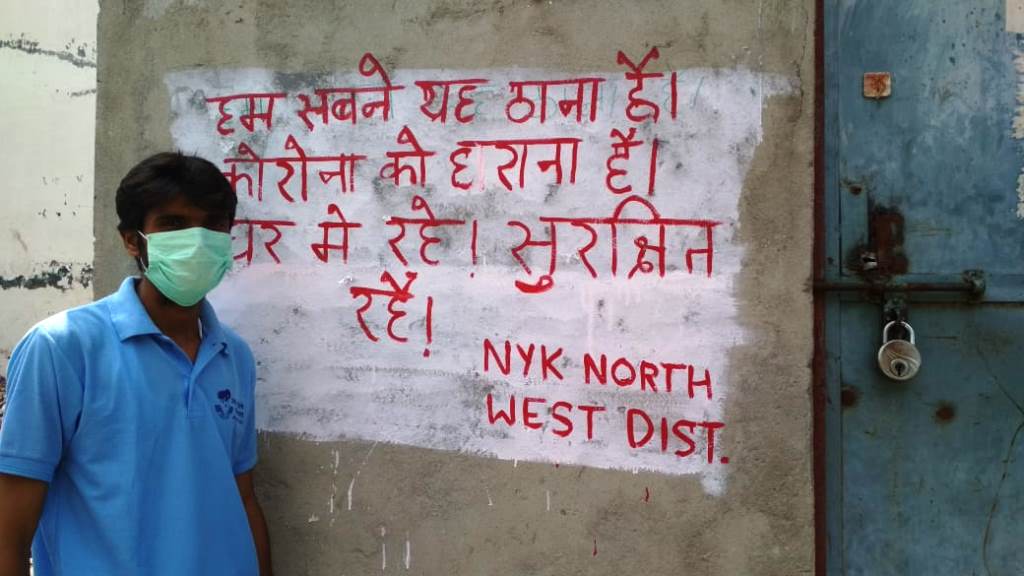 हम सबने यह ठाना है।
कोरोना को हाराना है।
घर मे रहे। सुरक्षित
रहें।
NYK NORTH
WEST DIST.